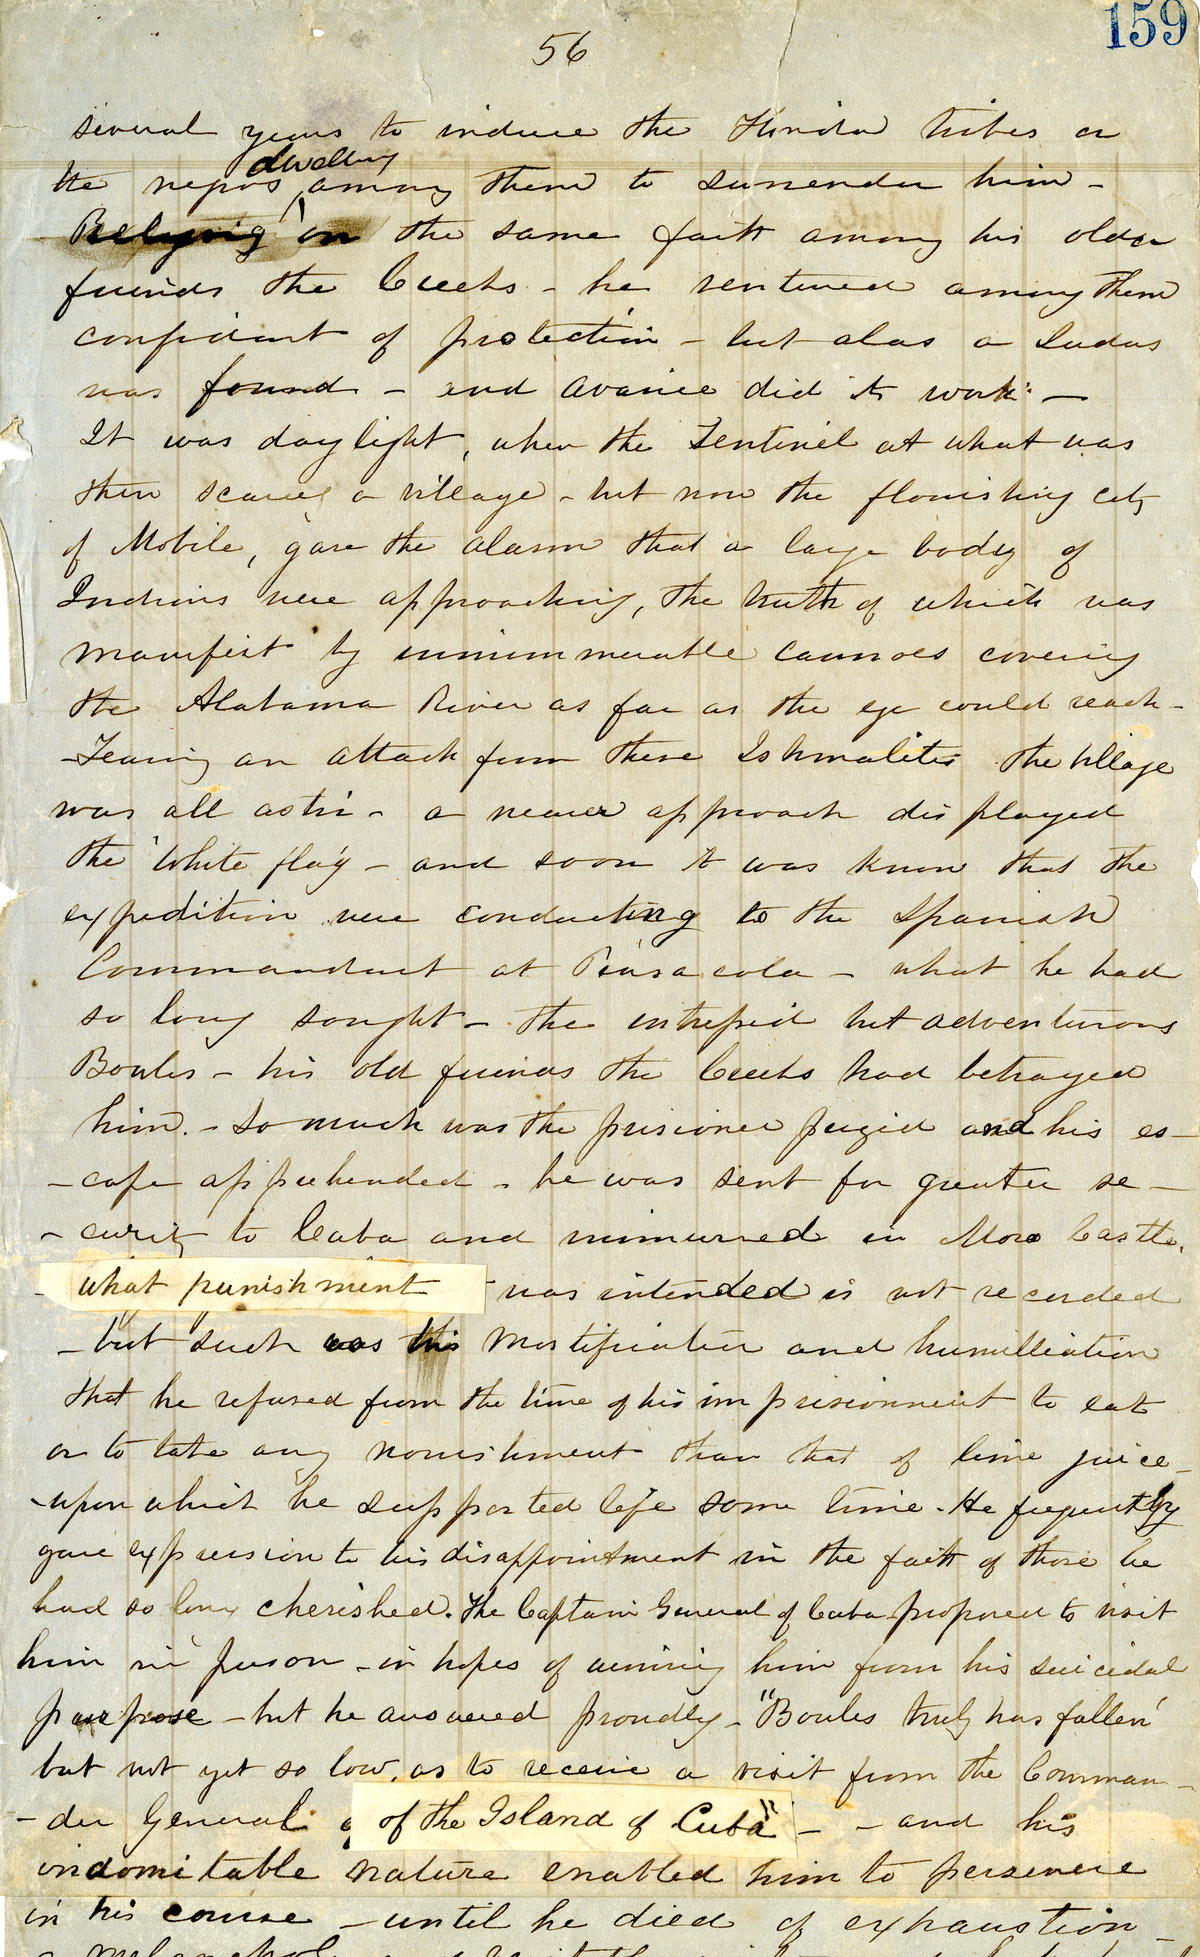 159
56
several years to induce the Florida tribes or
dwelling
the negros ^ among them to surrender him -
Relying on the same faith among his older
friends the Creeks - he ventured among them
confidant of protection - but alas a Judas
was found - and avarice did its work -
It was daylight, when the Sentinel at what was
then scarcely a village - but now the flourishing city
of Mobile, gave the alarm that a large body of
Indians were approaching, the truth of which was
manifest by innummerable cannoes covering
the Alabama River as far as the eye could reach -
- Fearing an attack from these Ishmalites the village
was all astir - a nearer approach displayed
the White flag - and soon it was know that the
expedition were conducting to the Spanish
Commandant at Pensacola - what he had
so long sought - the intrepid but adventurous
Bowles - his old friends the Creeks had betrayed
him. - So much was the prisioner prized and his es -
- cape apprehended - he was sent for greater se -
- curity to Cuba and immurred in Moro Castle.
what punishment was intended is not recorded
- but such was his Mortification and humilliation
that he refused from the time of his imprisionment to eat
or to take any nourishment than that of lime juice -
- upon which he supported life some time. He frequently
gave expression to his disappointment in the faith of those he
had so long cherished. The Captain General of Cuba proposed to visit
him in person - in hopes of wining him from his suicidal
purpose - but he answered proudly - "Bowles truly has fallen
but not yet so low, as to receive a visit from the Comman -
- der General of the Island of Cuba" - - and his
indomitable nature enabled him to persevere
in his course - until he died of exhaustion -
a melancholy